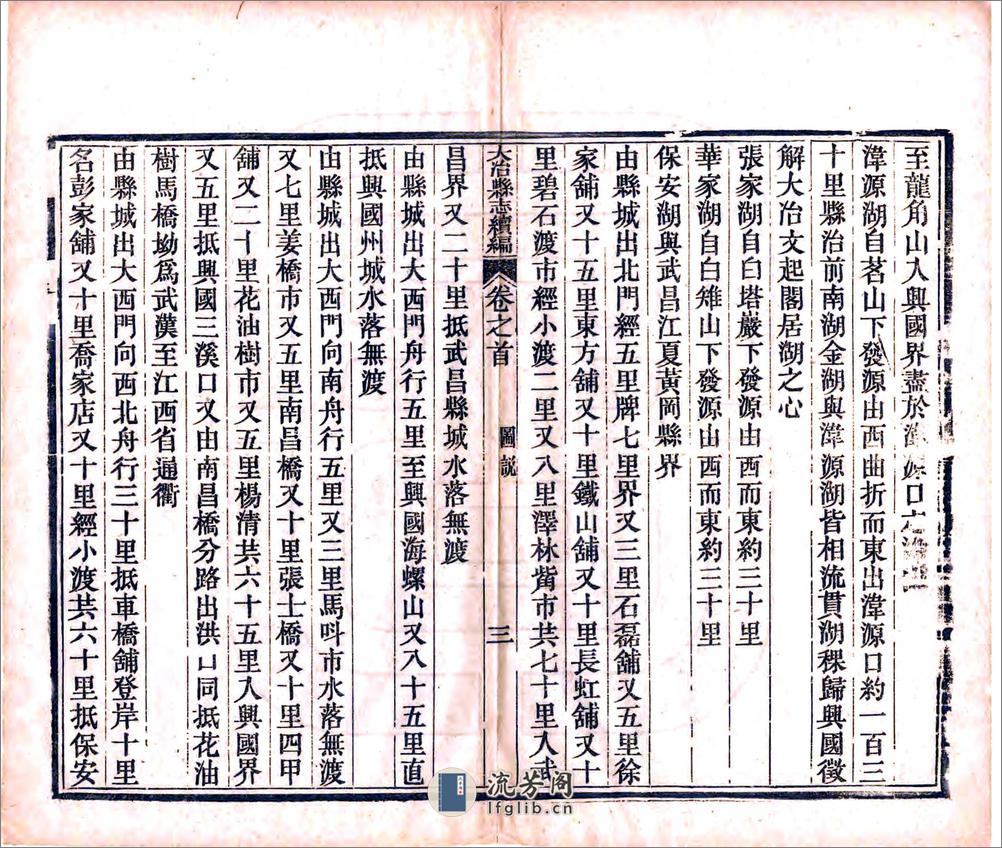 至龍角山入興國界盡於湋源口
湋源湖自茗山下發源由西曲折而東出湋源口約一百三
十里縣治前南湖金湖與湋源湖皆相流貫湖稞歸興國徵
解大冶文起閣居湖之心
張家湖自白塔巖下發源由西而東約三十里
華家湖自白雉山下發源山西而東約三十里
保安湖與武昌江夏黃岡縣界
由縣城出北門經五里牌七里界又三里石磊舖又五里徐
家舖又十五里東方舖又十里鐵山舖又十里長虹舖又十
里碧石渡市經小渡二里又八里澤林觜市共七十里入武
大冶縣志續編 卷之首 圖說 三
昌界又二十里抵武昌縣城水落無渡
由縣城出大西門舟行五里至興國海螺山又八十五里直
抵興國州城水落無渡
由縣城出大西門向南舟行五里又三里馬呌市水落無渡
又七里姜橋市又五里南昌橋又十里張士橋又十里四甲
舖又二十里花油樹市又五里楊清共六十五里入興國界
又五里抵興國三溪口又由南昌橋分路出洪口同抵花油
樹馬橋坳爲武漢至江西省通衢
由縣城出大西門向西北舟行三十里抵車橋舖登岸十里
名彭家舖又十里喬家店又十里經小渡共六十里抵保安
流芳阁
lfglib.cn